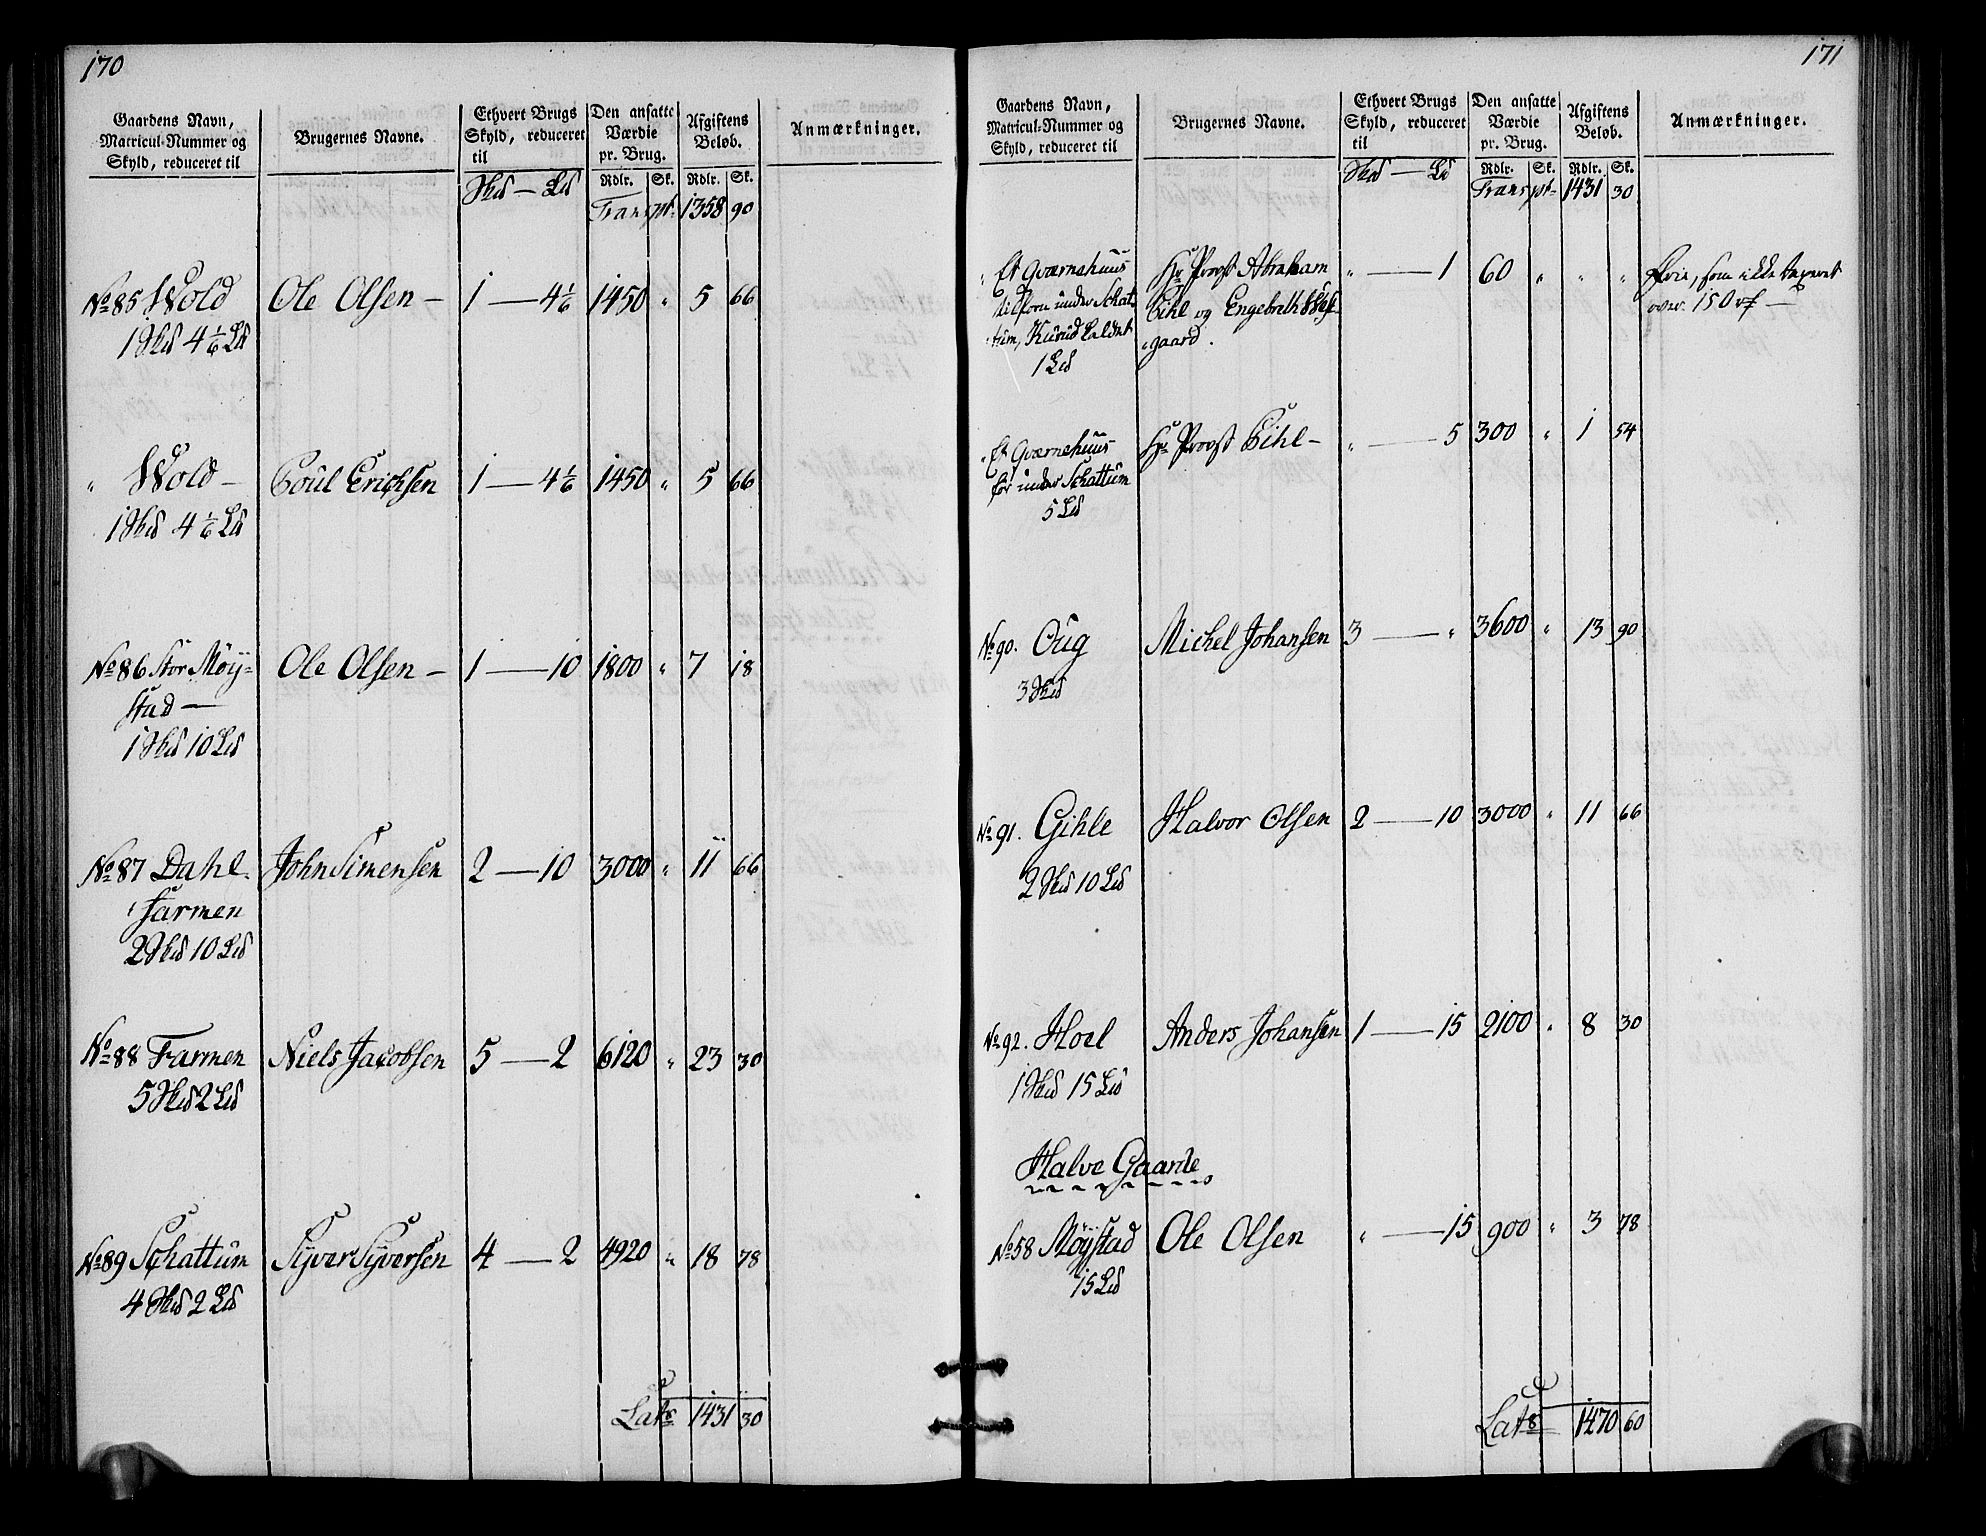 170
Gaardens Navn, Matricul-Nummer og Skyld, reduceret til | Brugernes Navne. | Ethvert Brugs Skyld, reduceret til | Den ansatte Værdie pr. Brug. | Afgiftens Beløb. | Anmærkninger.
Hud — Ld | Rdlr. | Sk. | Rdlr. | Sk.
Transpt. 1358 90
No 85 Wold Ole Olsen — 1 — 4 1/6 1450 " 5 66
1 Hud 4 1/6 Ld
" Wold — Poul Erichsen 1 — 4 1/6 1450 " 5 66
1 Hud 4 1/6 Ld
No 86 Stor Møy= Ole Olsen — 1 — 10 1800 " 7 18
stad —
1 Hud 10 Ld
No 87 Dahl- John Simensen 2 — 10 3000 " 11 66
farmen
2 Hud 10 Ld
No 88 Farmen Niels Jacobsen 5 — 2 6120 " 23 30
5 Hud 2 Ld
No 89 Schattum Syver Syversen 4 — 2 4920 " 18 78
4 Hud 2 Ld
Lats 1431 30
171
Gaardens Navn, Matricul-Nummer og Skyld, reduceret til | Brugernes Navne. | Ethvert Brugs Skyld, reduceret til | Den ansatte Værdie pr. Brug. | Afgiftens Beløb. | Anmærkninger.
Hud — Ld | Rdlr. | Sk. | Rdlr. | Sk.
Transpt- 1431 30
" Et Qværnehuus Hr Provst Abraham " — 1 60 " " " Frie, som ikke taxeret
tilforn under Schat- Pihl og Engebreth over 150 rd —
tum, Kurud kaldet gaard.
1 Ld
" Et Qværnehuus Hr Provst Pihl — " — 5 300 " 1 54
før under Schattum
5 Ld
No 90. Oug Michel Johansen 3 — " 3600 " 13 90
3 Hud
No 91. Gihle Halvor Olsen 2 — 10 3000 " 11 66
2 Hud 10 Ld
No 92. Hoel Anders Johansen 1 — 15 2100 " 8 30
1 Hud 15 Ld
Halve Gaarde
No 58 Møystad Ole Olsen " — 15 900 " 3 78
15 Ld
Lats 1470 60